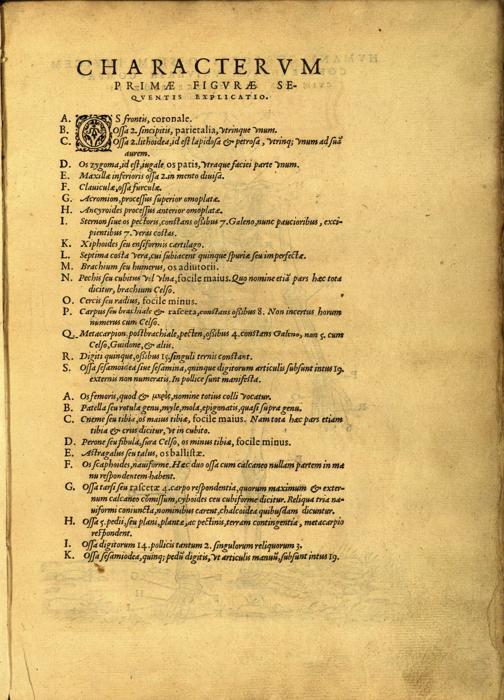 CHARACTERVM
PRIMÆ FIGVRÆ SE-
QVENTIS EXPLICATIO.
A. OS frontis, coronale.
B. Ossa 2. sincipitis, parietalia, vtrinque vnum.
C. Ossa 2. lithoidea, id est lapidosa & petrosa, vtrinq; vnum ad suã
aurem.
D. Os zygoma, id est, iugale, os patis, vtraque faciei parte vnum.
E. Maxillæ inferioris ossa 2. in mento diuisa.
F. Clauiculæ, ossa furculæ.
G. Acromion, processus superior omoplatæ.
H. Ancyroides processus anterior omoplatæ.
I. Sternon siue os pectoris, constans ossibus 7. Galeno, nunc paucioribus, exci-
pientibus 7. veras costas.
K. Xiphoides seu ensiformis cartilago.
L. Septima costa vera, cui subiacent quinque spuriæ seu imperfectæ.
M. Brachium seu humerus, os adiutorii.
N. Pechis seu cubitus vel vlna, focile maius. Quo nomine etiã pars hæc tota
dicitur, brachium Celso.
O. Cercis seu radius, focile minus.
P. Carpus seu brachiale & rasceta, constans ossibus 8. Non incertus horum
numerus cum Celso.
Q. Metacarpion, postbrachiale, pecten, ossibus 4. constans Galeno, non 5. cum
Celso, Guidone, & aliis.
R. Digiti quinque, ossibus 15. singuli ternis constant.
S. Ossa sesamoidea siue sesamina, quinque digitorum articulis subsunt intus 19.
externis non numeratis. In pollice sunt manifesta.
A. Os femoris, quod & μηρὸς, nomine totius colli vocatur.
B. Patella seu rotula genu, myle, mola, epigonatis, quasi supra genu.
C. Cneme seu tibia, os maius tibiæ, focile maius. Nam tota hæc pars etiam
tibia & crus dicitur, vt in cubito.
D. Perone seu fibula, sura Celso, os minus tibiæ, focile minus.
E. Astragalus seu talus, os ballistæ.
F. Os scaphoides, nauiforme. Hæc duo ossa cum calcaneo nullam partem in ma
nu respondentem habent.
G. Ossa tarsi seu rascetæ 4. carpo respondentia, quorum maximum & exter-
num calcaneo cõmissum, cyboides ceu cubiforme dicitur. Reliqua tria na-
uiformi coniuncta, nominibus carent, chalcoidea quibusdam dicuntur.
H. Ossa 5. pedii, seu plani, plantæ, ac pectinis, terram contingentia, metacarpio
respondent.
I. Ossa digitorum 14. pollicis tantum 2. singulorum reliquorum 3.
K. Ossa sesamiodea, quinq; pedũ digitis, vt articulis manuũ, subsunt intus 19.